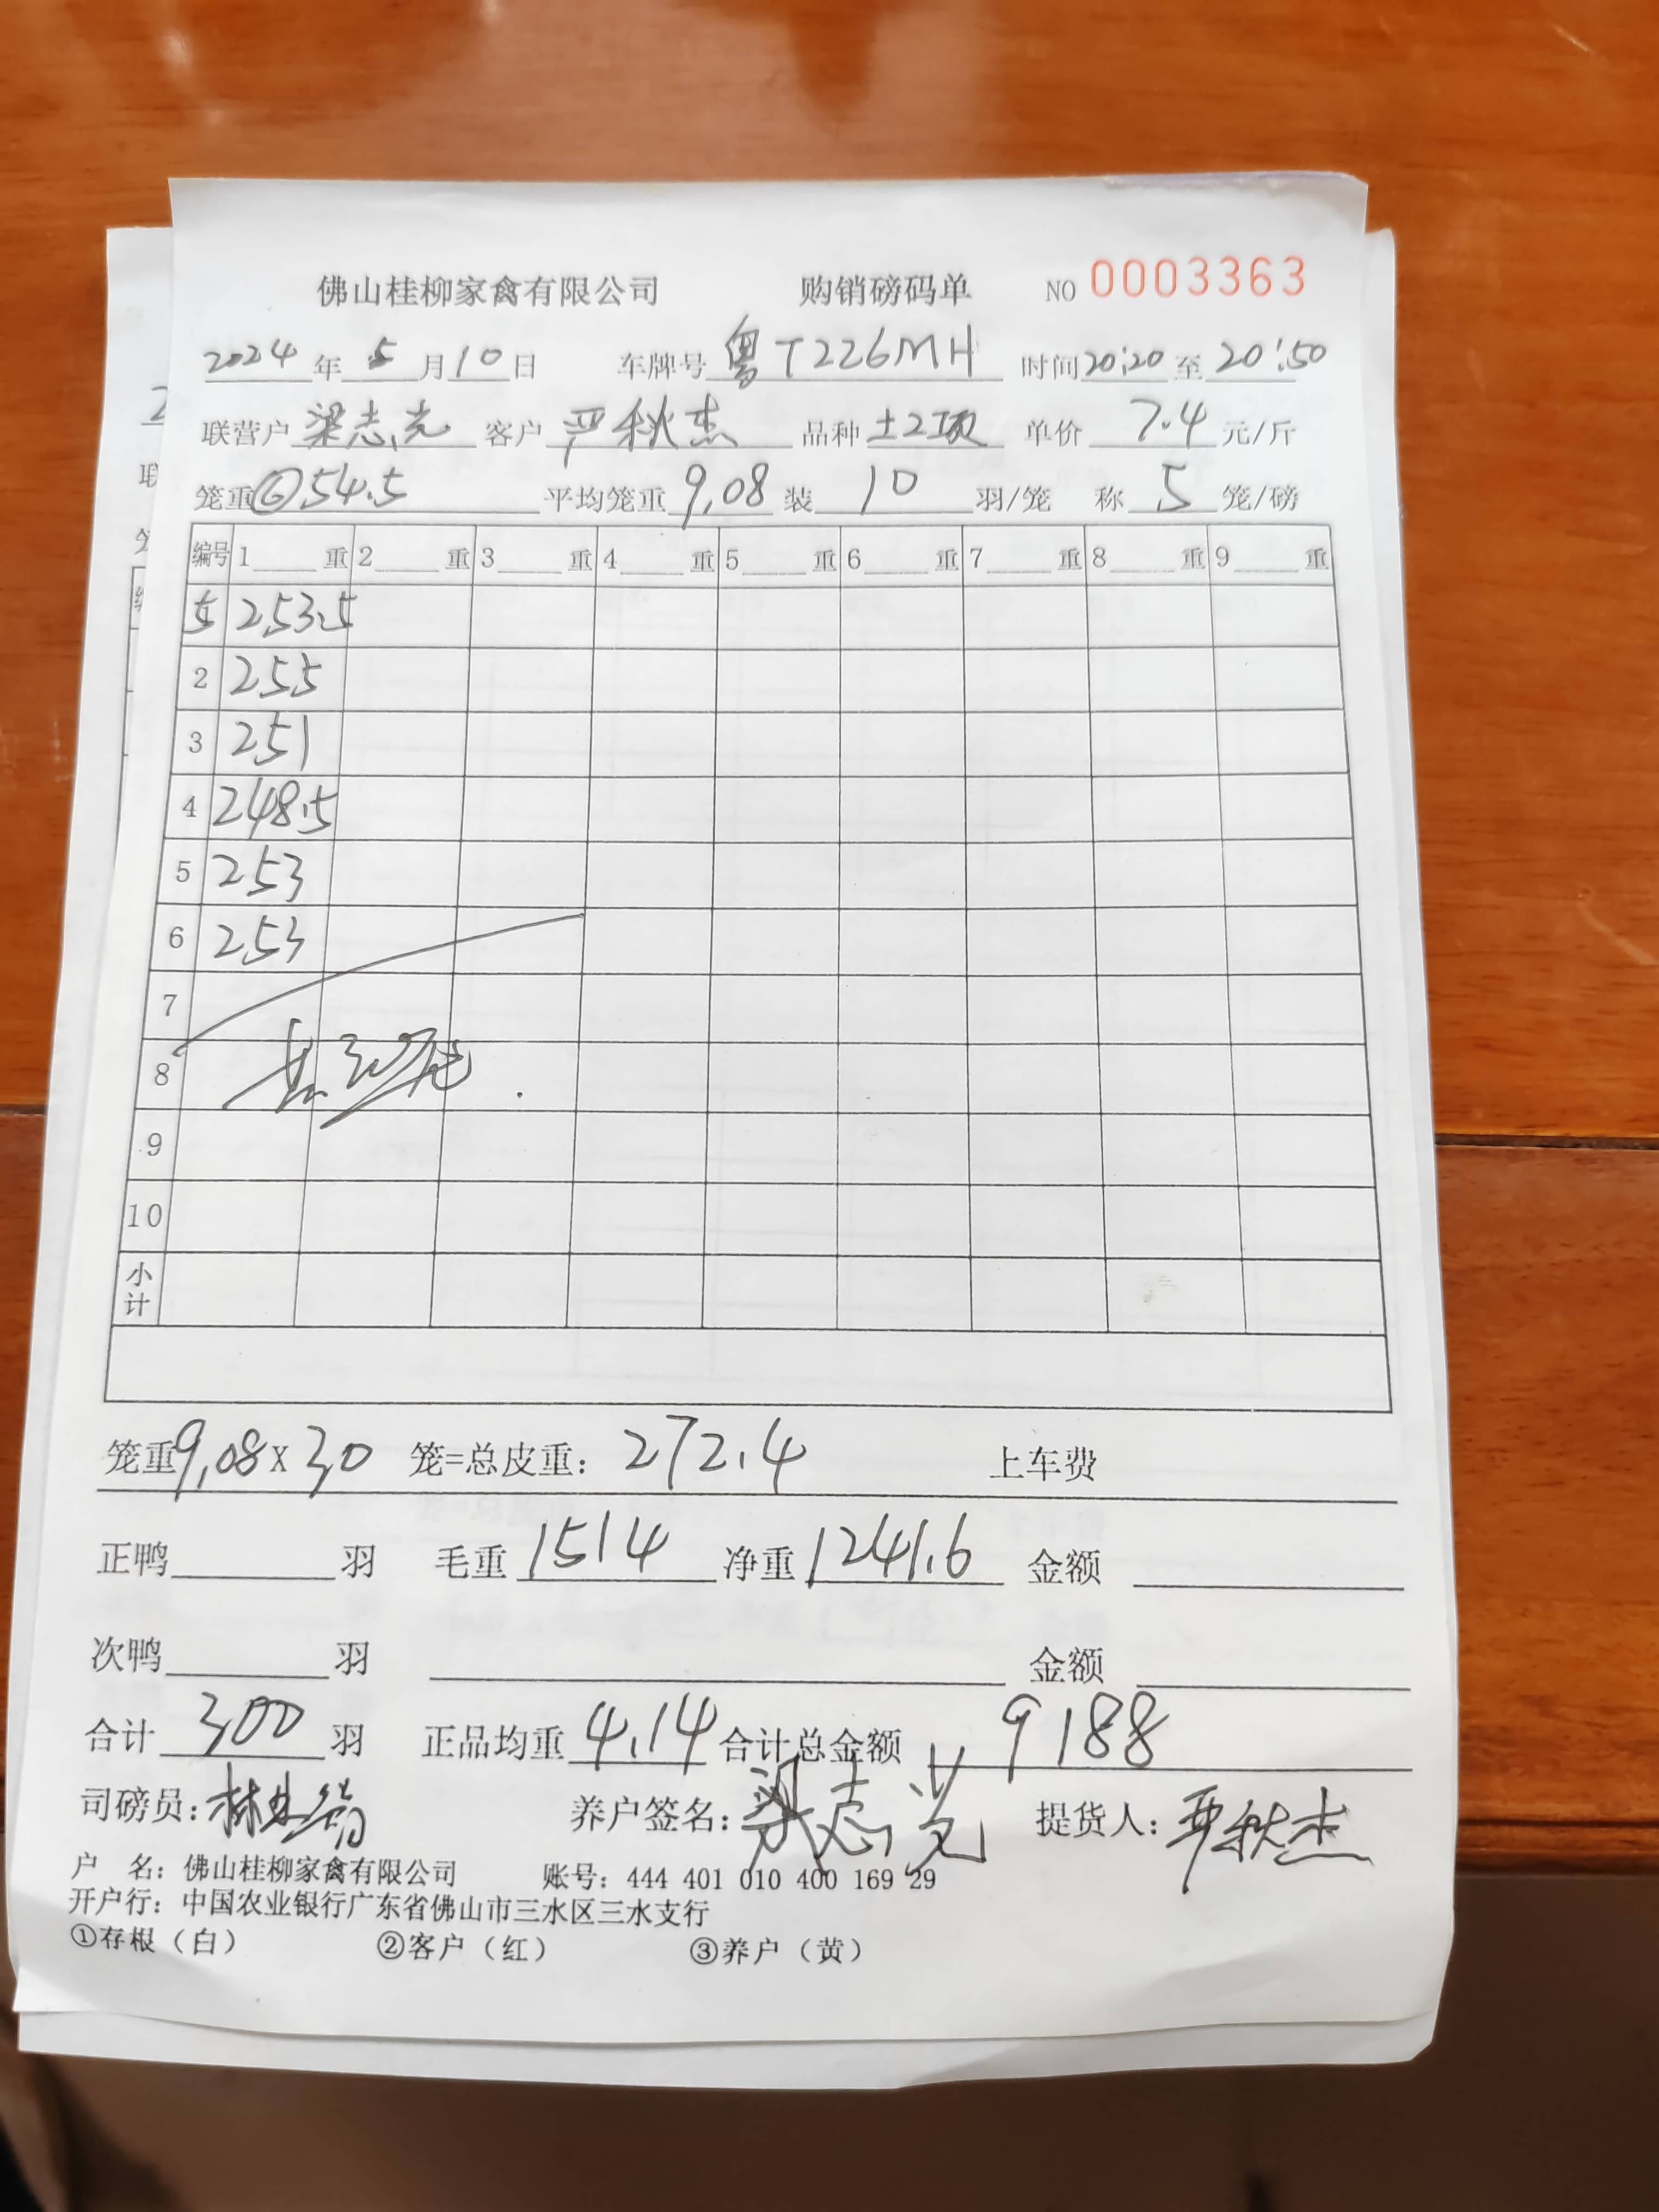 佛山桂柳家禽有限公司 购销磅码单 NO 0003363
2024 年 5 月 10 日 车牌号 粤T226MH 时间 20:20 至 20:50
联营户 梁志光 客户 严秋杰 品种 土2项 单价 7.4 元/斤
笼重 ⑥54.5 平均笼重 9.08 装 10 羽/笼 称 5 笼/磅
编号 1 重 2 重 3 重 4 重 5 重 6 重 7 重 8 重 9 重
5 253.5
2 255
3 251
4 248.5
5 253
6 253
7
8 共30笼
9
10
小计
笼重 9.08 x 30 笼=总皮重: 272.4 上车费
正鸭 羽 毛重 1514 净重 1241.6 金额
次鸭 羽 金额
合计 300 羽 正品均重 4.14 合计总金额 9188
司磅员: 养户签名: 梁志光 提货人: 严秋杰
户 名: 佛山桂柳家禽有限公司 账号: 444 401 010 400 169 29
开户行: 中国农业银行广东省佛山市三水区三水支行
①存根（白） ②客户（红） ③养户（黄）